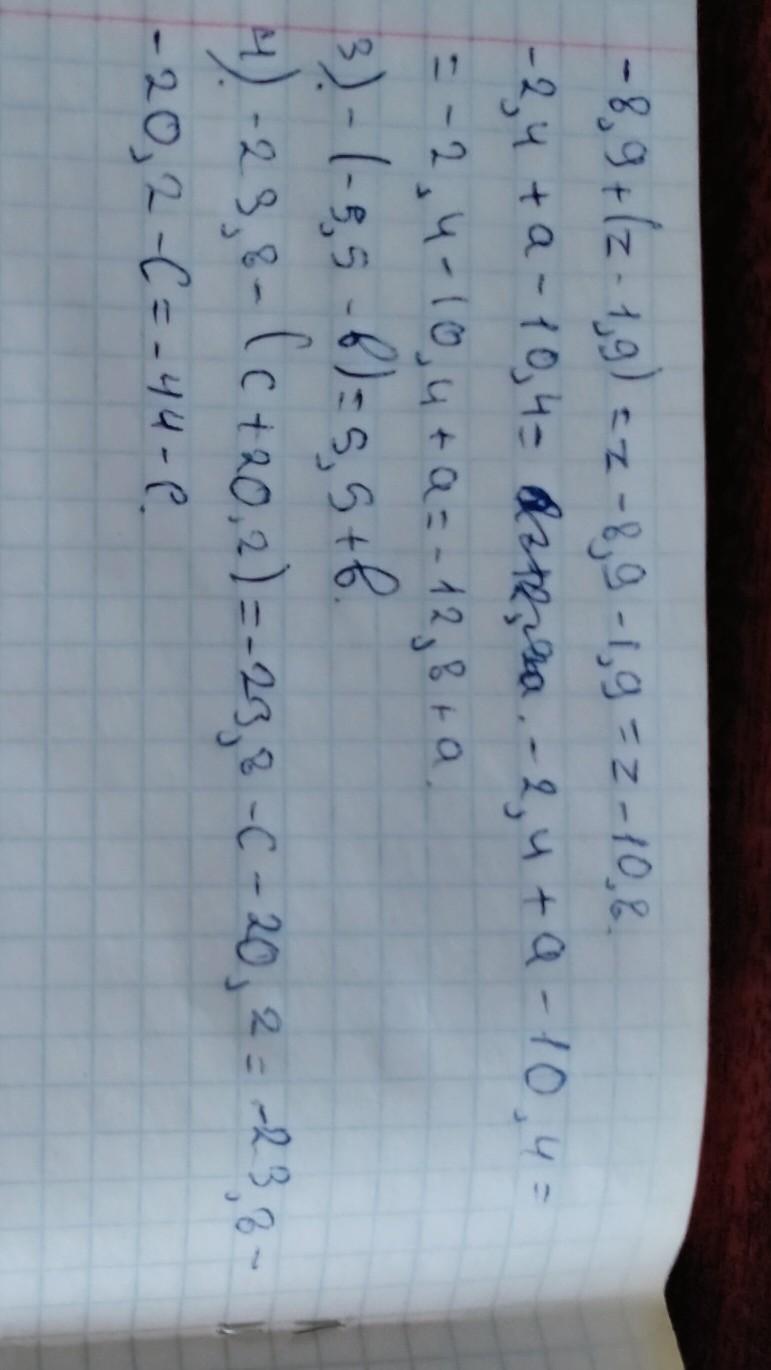 -8,9+(z-1,9)=z-8,9-1,9=z-10,8.
-2,4+a-10,4= -2,4+a-10,4=
=-2,4-10,4+a=-12,8+a.
3) -(-5,5-b)=5,5+b.
4) -23,8-(c+20,2)=-23,8-c-20,2=-23,8-
-20,2-c=-44-c.